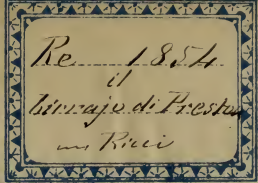 Re 1854
il
birrajo di Preston
Ricci